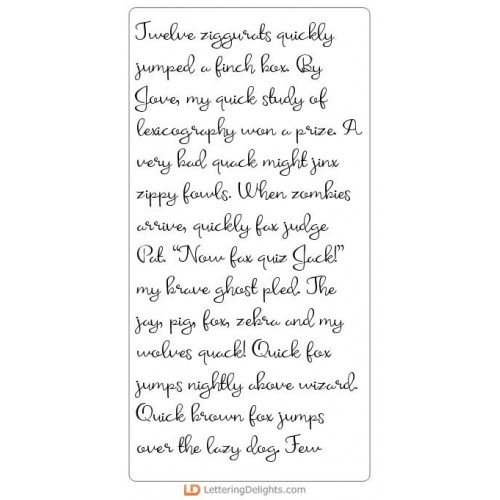 Twelve ziggurats quickly
jumped a finch box. By
Jove, my quick study of
lexicography won a prize. A
very bad quack might jinx
zippy fowls. When zombies
arrive, quickly fax judge
Pat. “Now fax quiz Jack!”
my brave ghost pled. The
jay, pig, fox, zebra and my
wolves quack! Quick fox
jumps nightly above wizard.
Quick brown fox jumps
over the lazy dog. Few
LD LetteringDelights.com